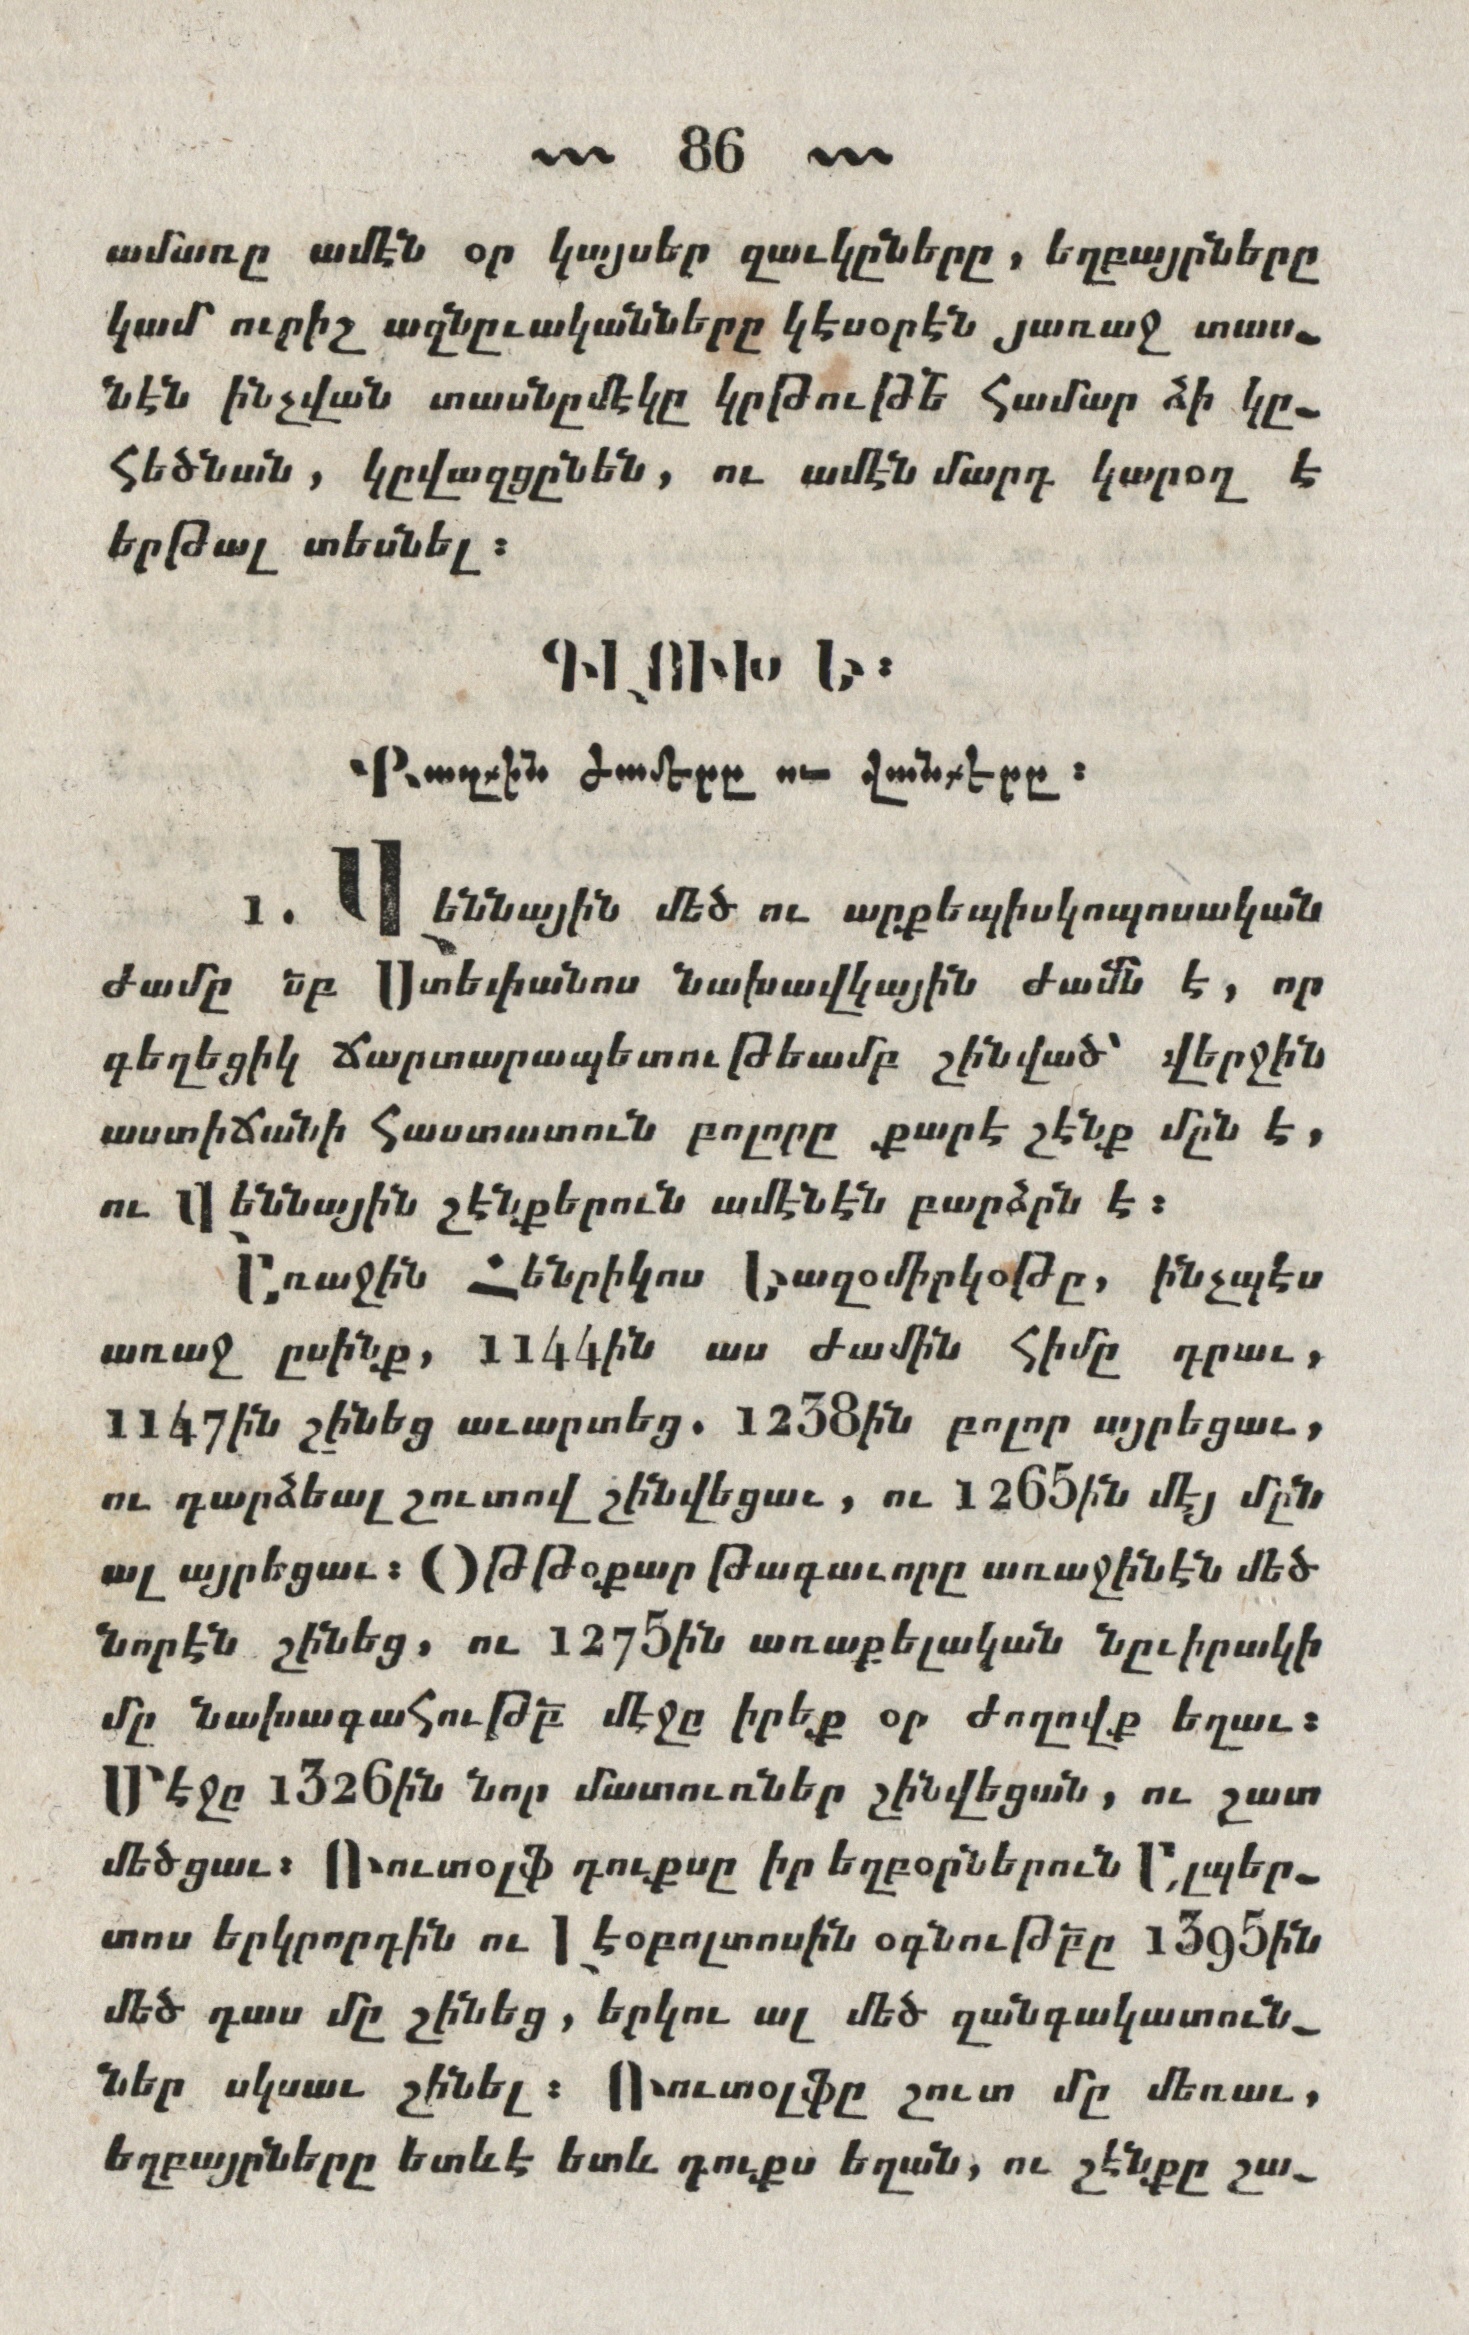 86
ամառը ամէն օր կայսեր զաւկըները, եղբայրները
կամ ուրիշ ազնըւականները կէսօրէն յառաջ տաս֊
նէն ինչվան տասնըմէկը կրթութե՟ համար ձի կը֊
հեծնան, կըվազցընեն, ու ամէն մարդ կարօղ է
երթալ տեսնել։
ԳԼՈՒԽ Է։
Քաղքին ժամերը ու վանքերը։
1. Վեննային մեծ ու արքեպիսկոպոսական
ժամը ս՟բ Ստեփանոս նախավկային ժամն է, որ
գեղեցիկ ճարտարապետութեամբ շինված՝ վերջին
աստիճանի հաստատուն բոլորը քարէ շէնք մըն է,
ու Վեննային շէնքերուն ամէնէն բարձրն է։
Առաջին Հենրիկոս Եազօմիրկօթը, ինչպէս
առաջ ըսինք, 1144ին աս ժամին հիմը դրաւ,
1147ին շինեց աւարտեց. 1238ին բոլոր այրեցաւ,
ու դարձեալ շուտով շինվեցաւ, ու 1265ին մէյ մըն
ալ այրեցաւ։ Օթթօքար թագաւորը առաջինէն մեծ
նորէն շինեց, ու 1275ին առաքելական նըւիրակի
մը նախագահութբ՟ մէջը իրեք օր ժողովք եղաւ։
Մէջը 1326ին նոր մատուռներ շինվեցան, ու շատ
մեծցաւ։ Ռուտօլֆ դուքսը իր եղբօրներուն Ալպեր֊
տոս երկրորդին ու Լէօբոլտոսին օգնութբ՟ը 1395ին
մեծ դաս մը շինեց, երկու ալ մեծ զանգակատուն֊
ներ սկսաւ շինել։ Ռուտօլֆը շուտ մը մեռաւ,
եղբայրները ետևէ ետև դուքս եղան, ու շէնքը շա֊